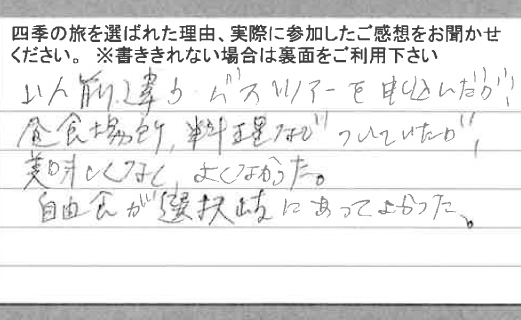 四季の旅を選ばれた理由、実際に参加したご感想をお聞かせ
ください。 ※書ききれない場合は裏面をご利用下さい
バスツアーを申込んだが、
昼食場所、料理などついていたが、
美味しくなく、よくなかった。
自由食が選択岐にあってよかった。